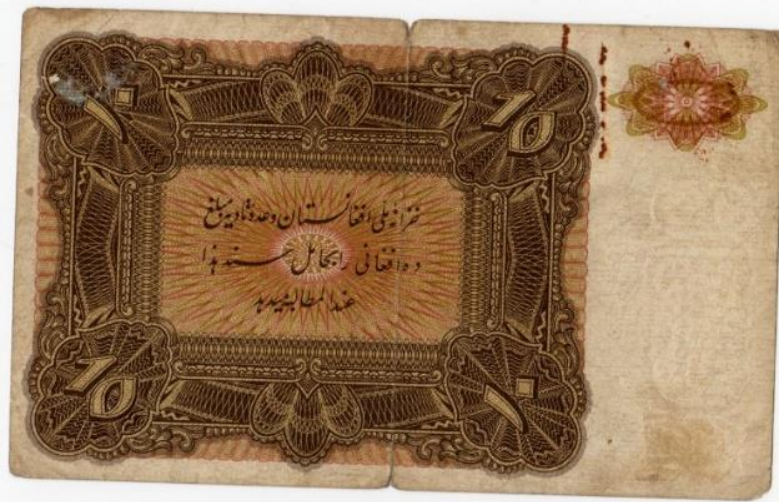 ۱۰
10
خزانه ملی افغانستان وعدۀ تادیه مبلغ
ده افغانی را بحامل سند هذا
عندالمطالبه میدهد
10
۱۰